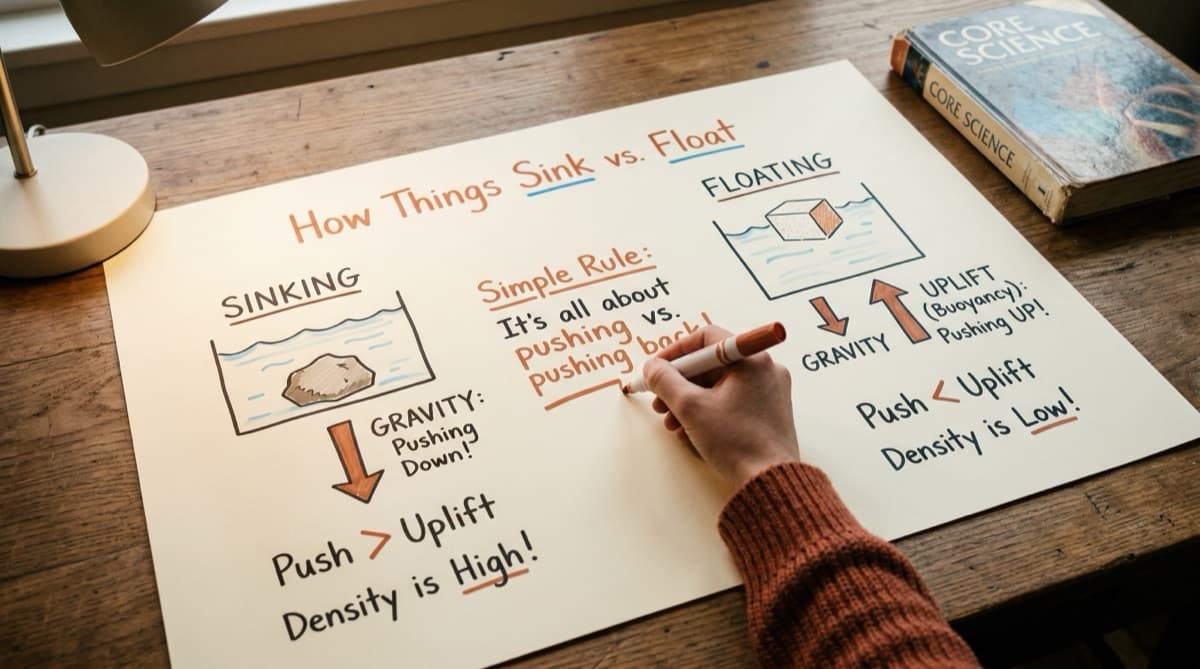 How Things Sink vs. Float
SINKING
GRAVITY:
Pushing
Down!
Push > Uplift
Density is High!
Simple Rule:
It's all about
pushing vs.
pushing back!
FLOATING
GRAVITY
UPLIFT
(Buoyancy):
Pushing UP!
Push < Uplift
Density is Low!
CORE
SCIENCE
CORE SCIENCE